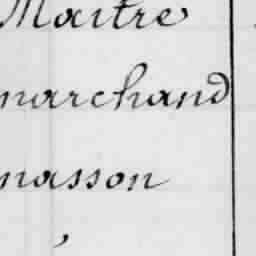 Maitre
marchand
masson
,